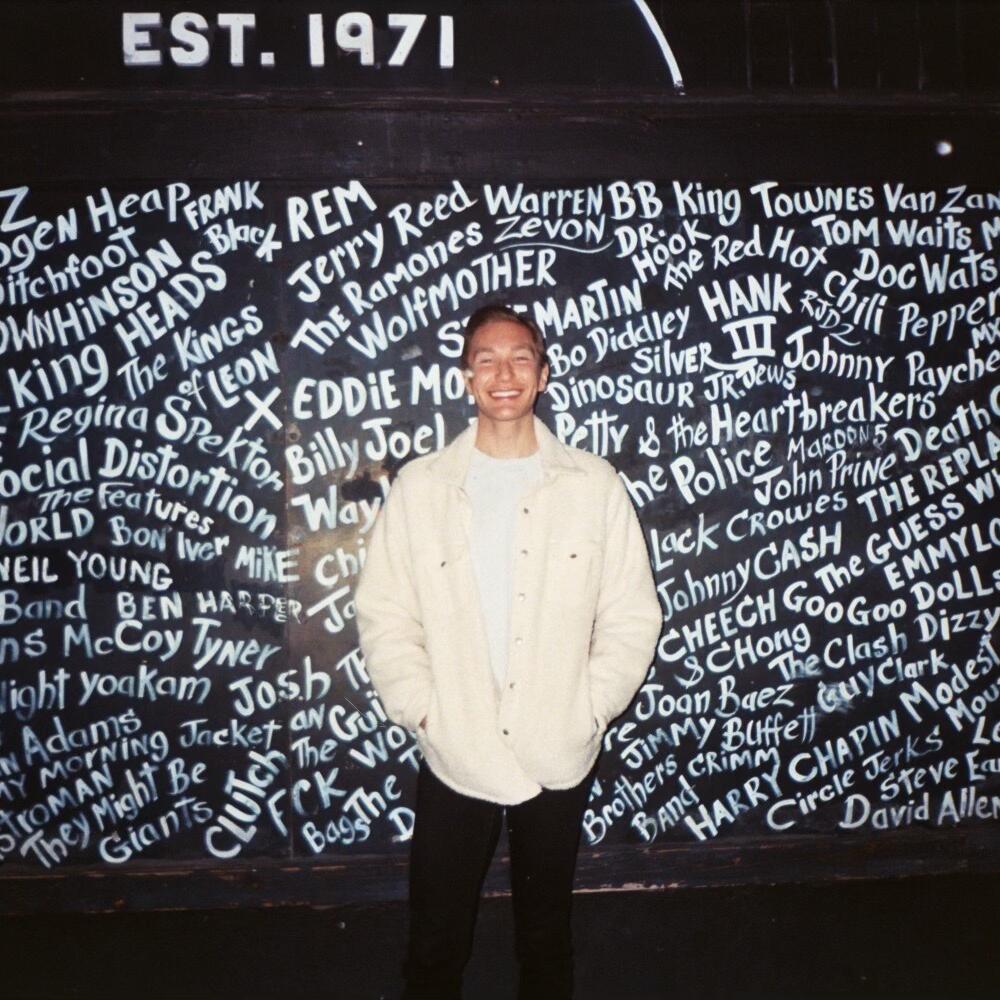 EST. 1971
FRANK
Black
REM
Jerry Reed
The Ramones
Warren
Zevon
WolfMOTHER
BB King
Townes Van Zan
Tom Waits
Dr. Hook
The Red Hot
Chili Pepper
Doc Wats
Heap
itchfoot
OWNHINSON
king HEADS
The Kings
of LEON
X
Regina Spektor
MARTIN
Bo Diddley
HANK
III
RJD2
Silver
Jews
Johnny Payche
EDDIE MO
Dinosaur Jr.
Billy Joel
Petty & the Heartbreakers
ocial Distortion
The Features
Way
he Police
Maroon 5
John Prine
Death
THE REPLA
WORLD
Bon Iver
MIKE
Chi
lack Crowes
The GUESS
NEIL YOUNG
Johnny CASH
EMMYLO
Band
BEN HARPER
Ja
CHEECH
& CHong
Goo Goo DOLLS
McCoy Tyner
The Clash
Dizzy
ight yoakam
Josh
Joan Baez
Guy Clark
Modest
Mou
Adams
an
The
Jimmy Buffett
My Morning Jacket
Brothers
Band
CRIMM
HARRY CHAPIN
stroman
They Might Be
Giants
CLUTCH
FCK
Bags
The
Circle Jerks
Steve Ear
David Allen